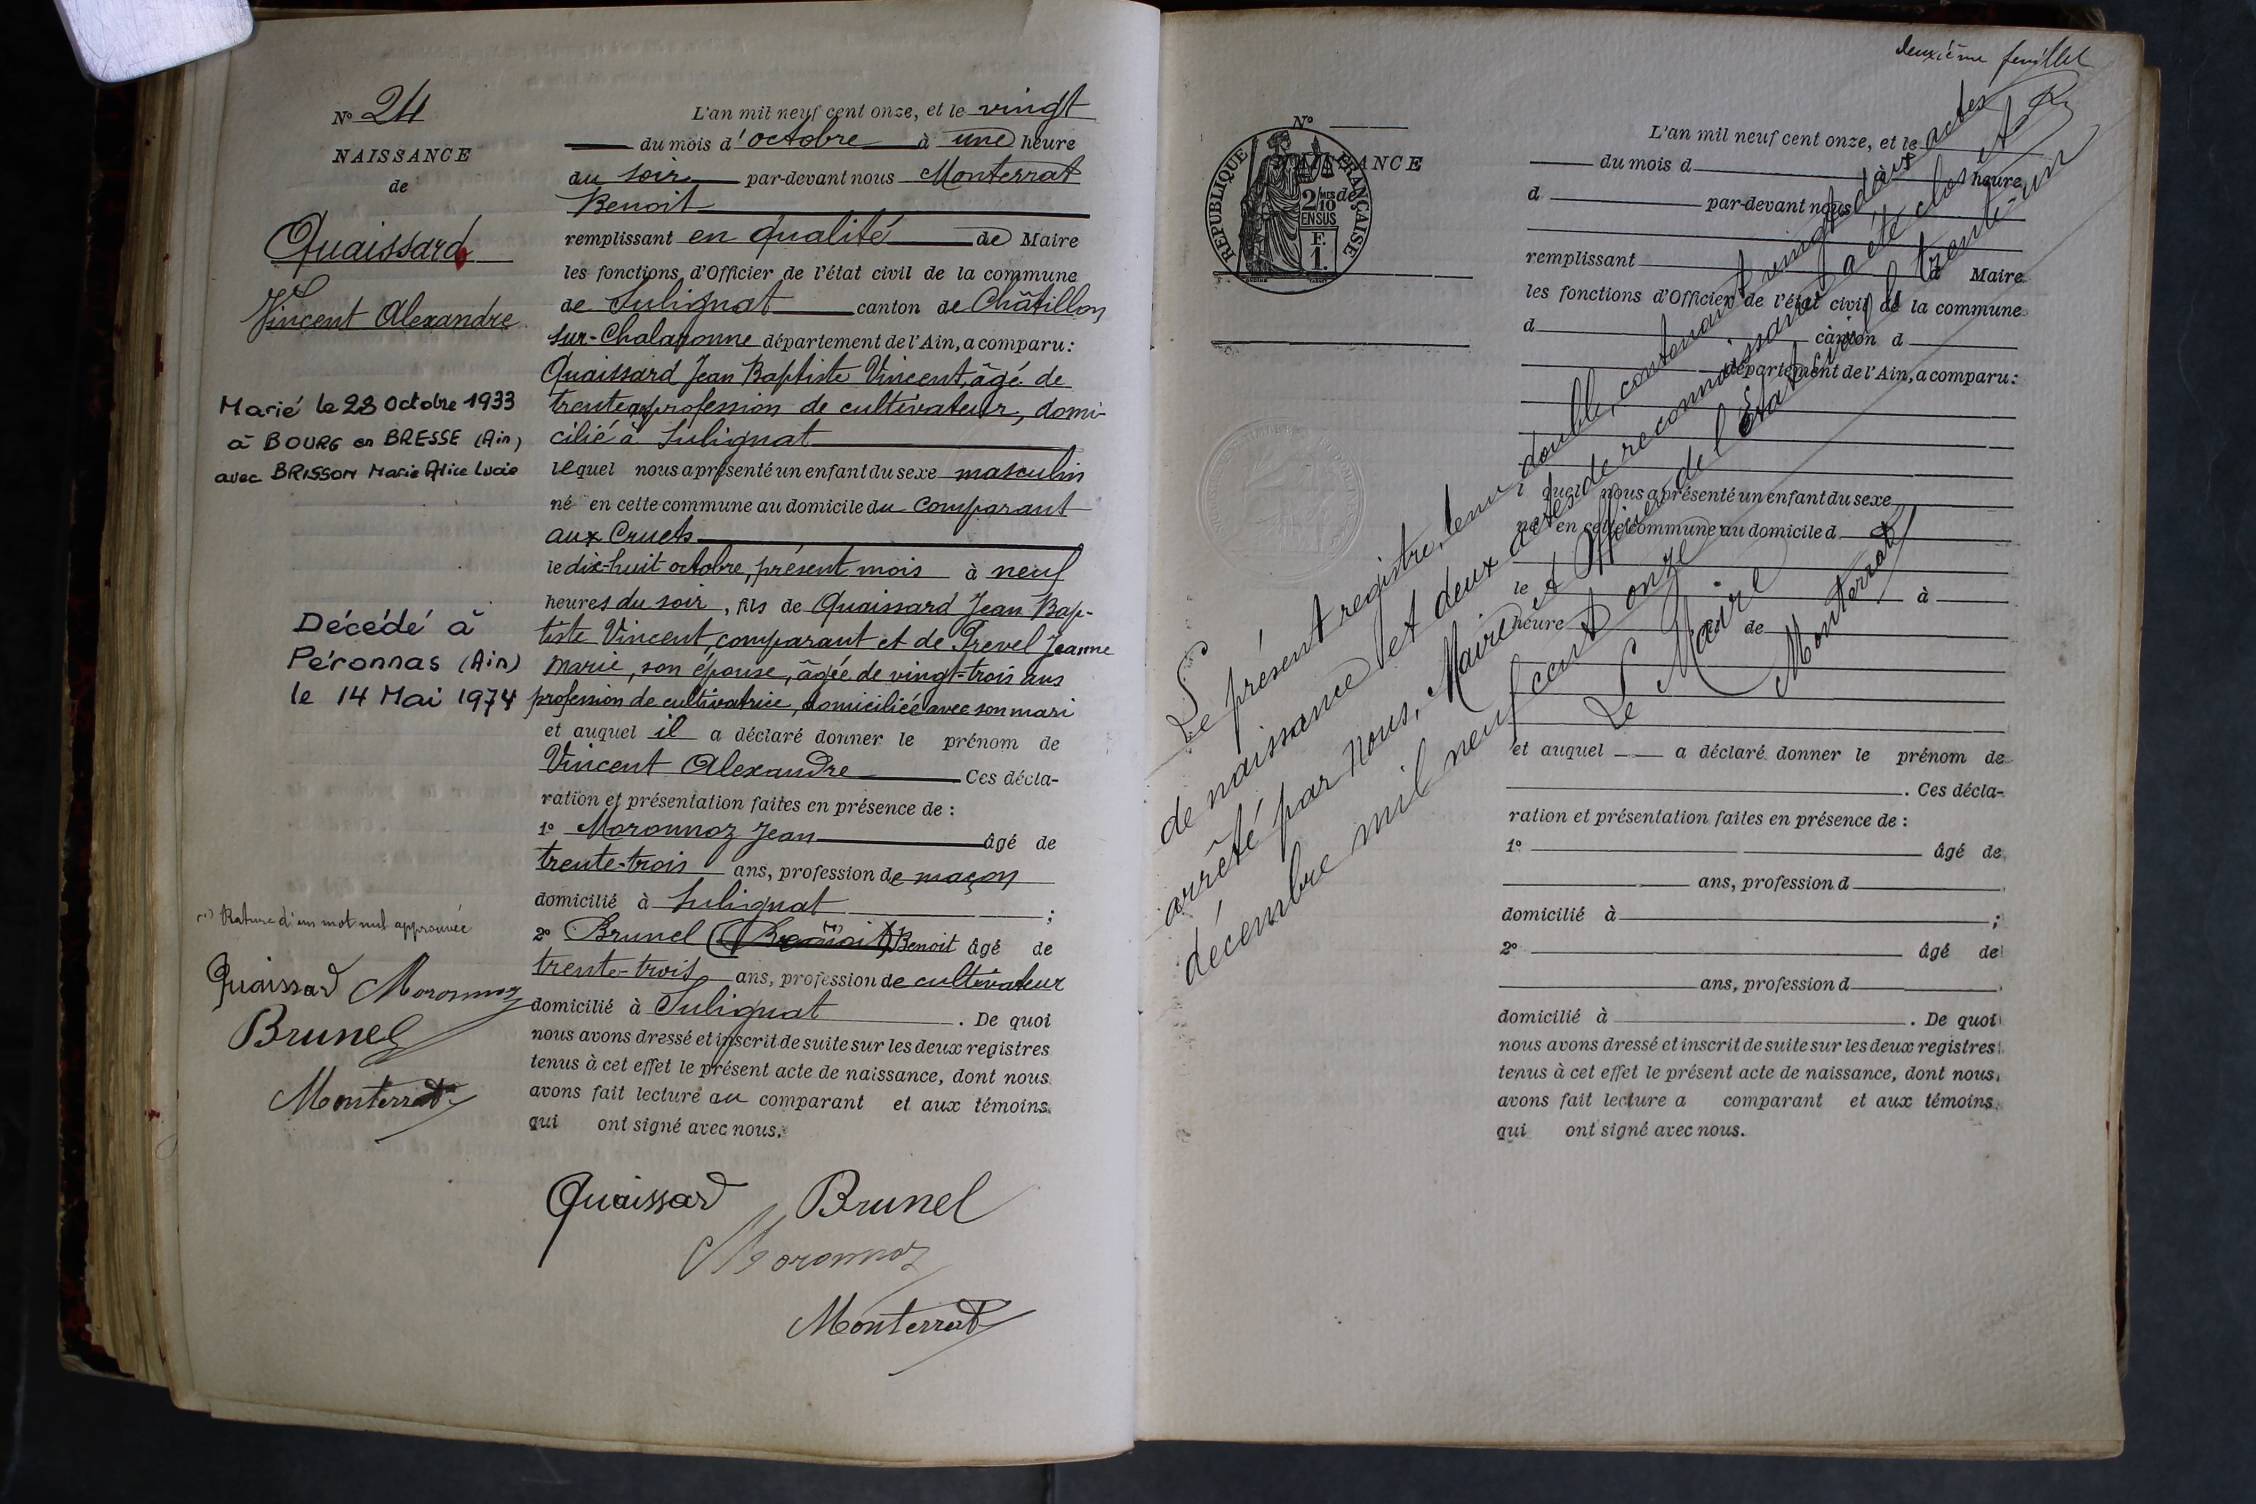 Nº 24
NAISSANCE
de
Quaissard
Vincent Alexandre
Marié le 28 Octobre 1933
à BOURG en BRESSE (Ain)
avec BRISSON Marie Alice Lucie
Décédé à
Péronnas (Ain)
le 14 Mai 1974
(1) Rature d'un mot nul approuvée
Quaissard Moronnoz
Brunel
Monterrat
L'an mil neuf cent onze, et le vingt
du mois d'octobre à une heure
du soir par-devant nous Monterrat
Benoit
remplissant en qualité de Maire
les fonctions d'Officier de l'état civil de la commune
de Sulignat canton de Châtillon
sur-Chalaronne département de l'Ain, a comparu :
Quaissard Jean Baptiste Vincent, âgé de
trente profession de cultivateur, domi-
cilié à Sulignat
lequel nous a présenté un enfant du sexe masculin
né en cette commune au domicile du comparant
aux Cruets
le dix-huit octobre, présent mois à neuf
heures du soir, fils de Quaissard Jean Bap-
tiste Vincent, comparant et de Prevel Jeanne
Marie, son épouse, âgée de vingt-trois ans
profession de cultivatrice, domiciliée avec son mari
et auquel il a déclaré donner le prénom de
Vincent Alexandre Ces décla-
ration et présentation faites en présence de :
1º Moronnoz Jean âgé de
trente-trois ans, profession de maçon
domicilié à Sulignat ;
2º Brunel (1) Benoit âgé de
trente-trois ans, profession de cultivateur
domicilié à Sulignat . De quoi
nous avons dressé et inscrit de suite sur les deux registres
tenus à cet effet le présent acte de naissance, dont nous
avons fait lecture au comparant et aux témoins
qui ont signé avec nous.
Quaissard Brunel
Moronnoz
Monterrat
deuxième feuillet
Nº
NAISSANCE
de
REPUBLIQUE FRANÇAISE
2/10 EN SUS
F. 1.
L'an mil neuf cent onze, et le
du mois d heure
d par-devant nous
remplissant d Maire
les fonctions d'Officier de l'état civil de la commune
d canton d
département de l'Ain, a comparu :
l quel nous a présenté un enfant du sexe
né en cette commune au domicile d
le à
heure de
et auquel a déclaré donner le prénom de
. Ces décla-
ration et présentation faites en présence de :
1º âgé de
ans, profession d
domicilié à ;
2º âgé de
ans, profession d
domicilié à . De quoi
nous avons dressé et inscrit de suite sur les deux registres
tenus à cet effet le présent acte de naissance, dont nous
avons fait lecture a comparant et aux témoins
qui ont signé avec nous.
Le présent registre, tenu double, contenant vingt-deux actes
de naissance et deux actes de reconnaissance a été clos et
arrêté par Nous, Maire et Officier de l'État civil le trente-un
décembre mil neuf cent onze
Le Maire
Monterrat